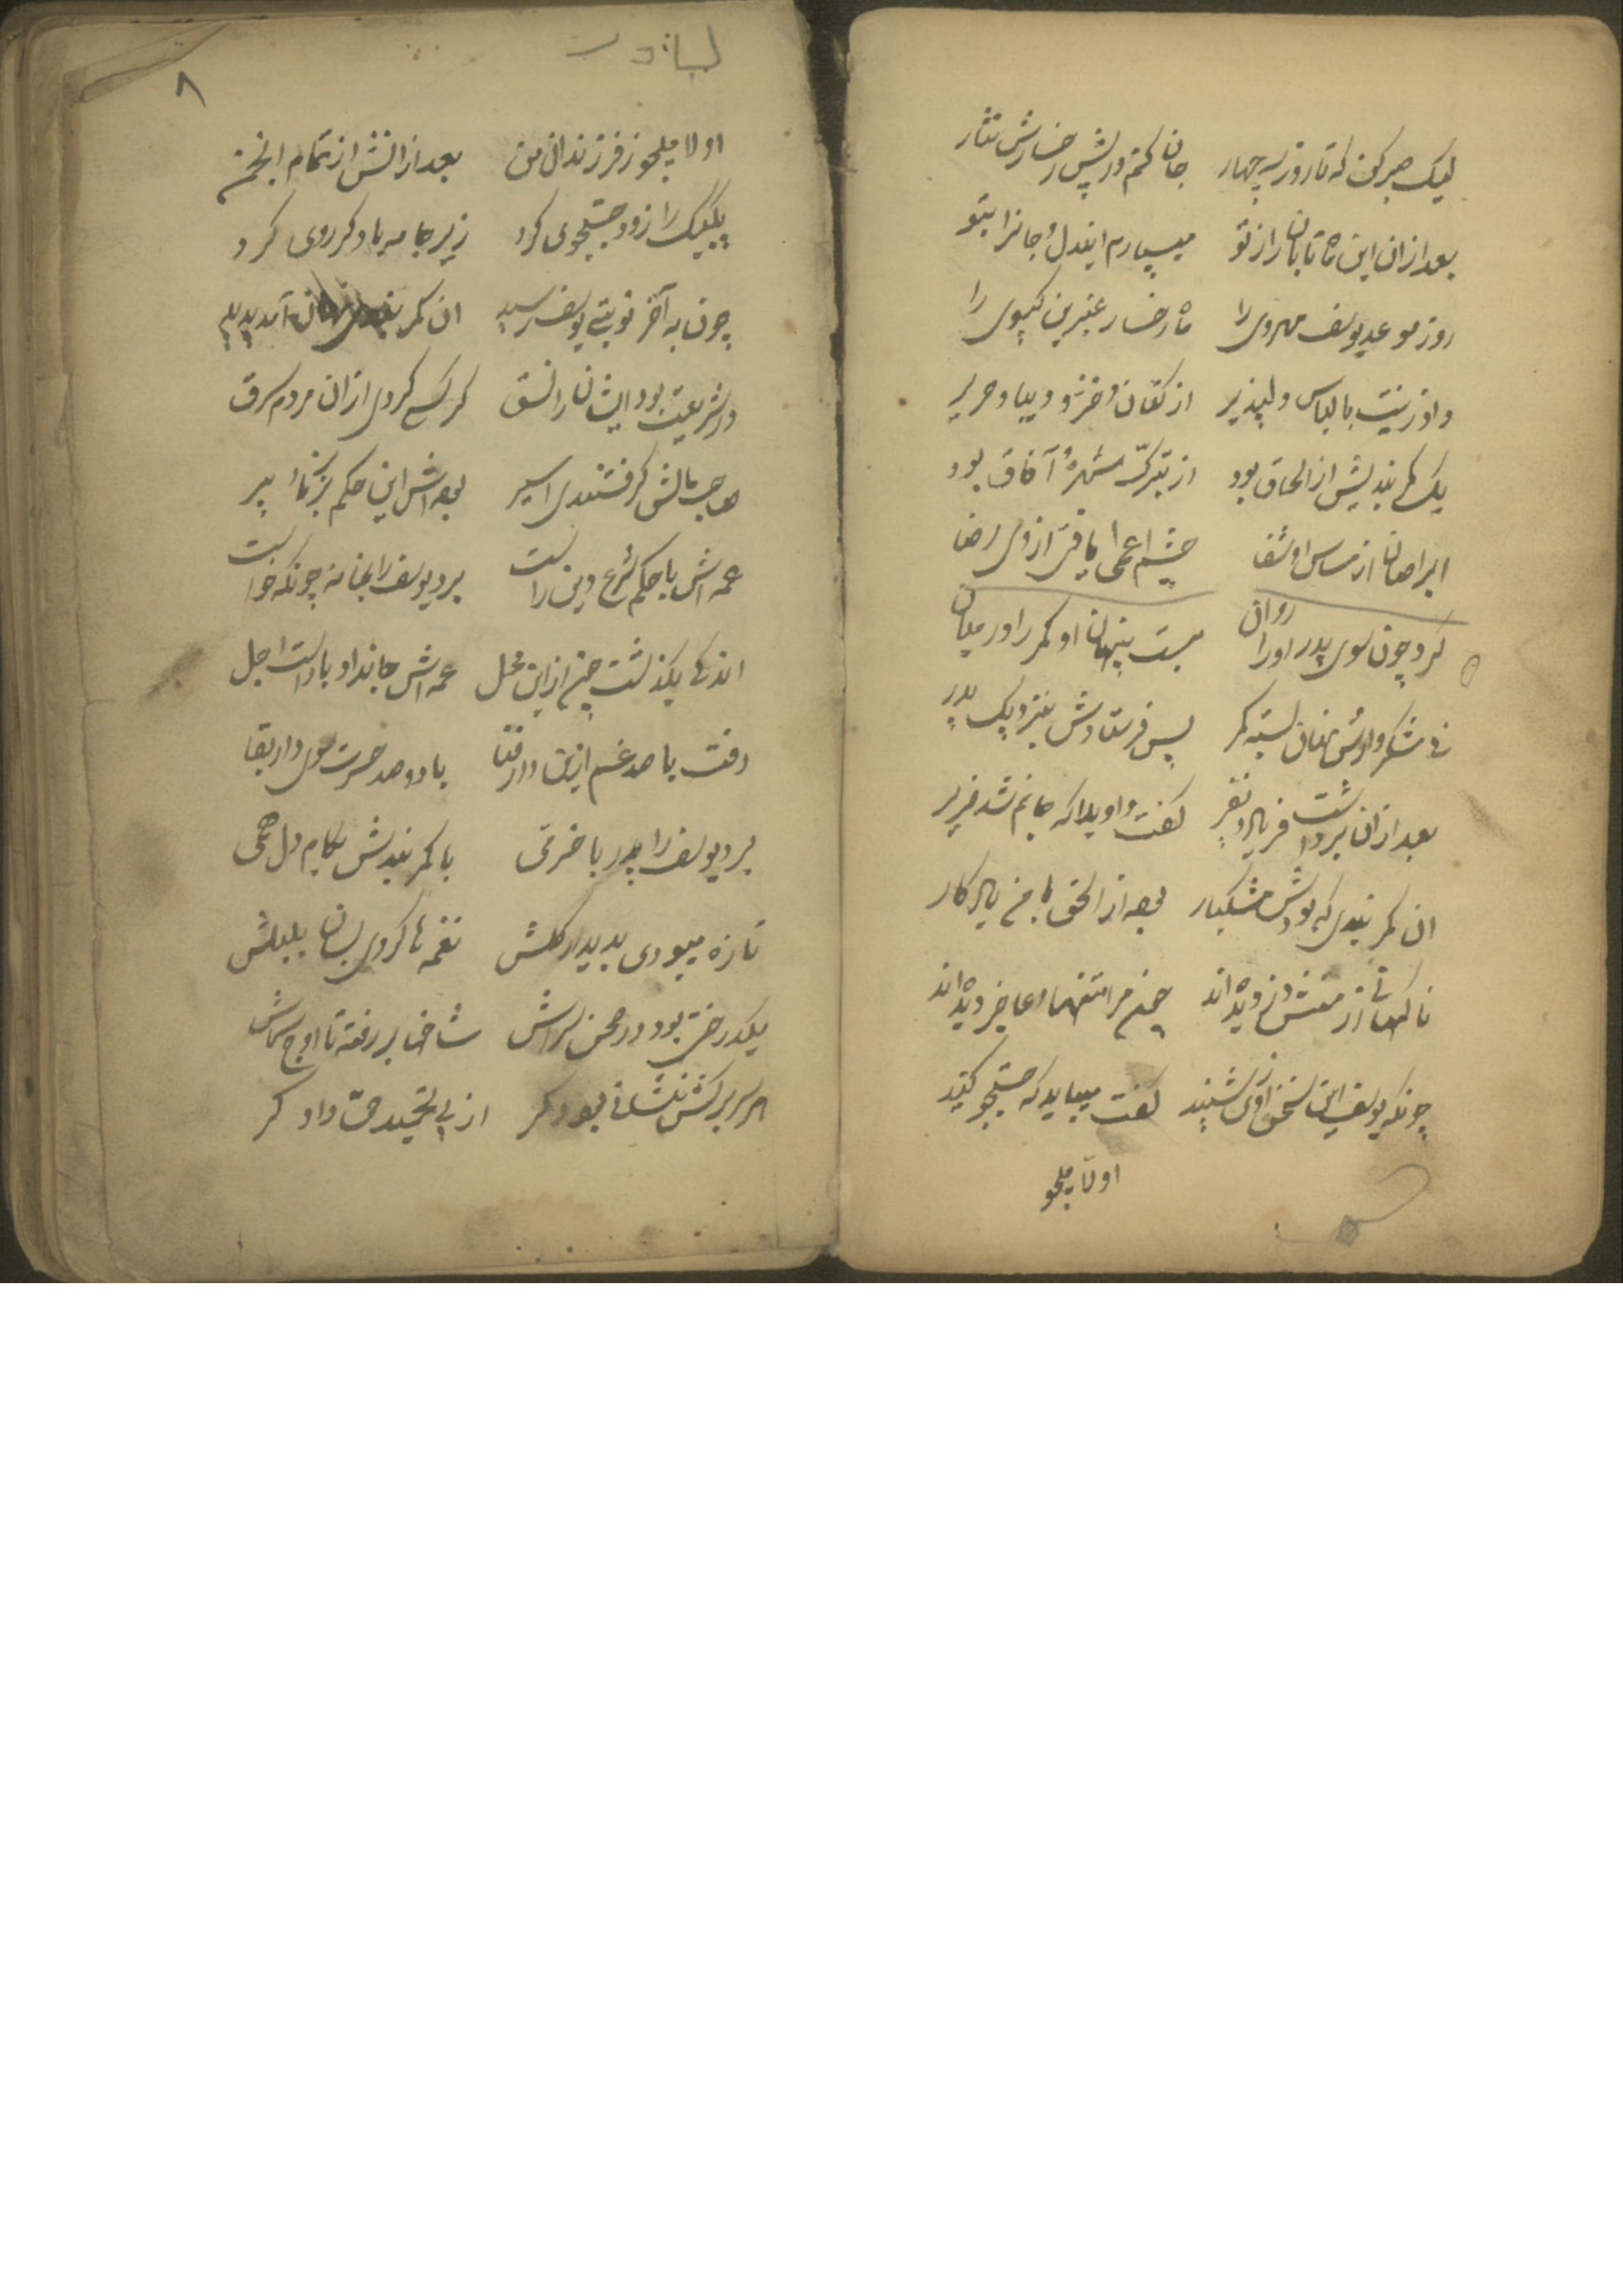 لیک صبر کن که تا روز سه چهار جان کنم در پیش رخسارش نثار
بعد ازان این ماه تابان را ز تو میسپارم ایندل و جانرا بتو
روز موعد یوسف مهروی را ماه رخسار عنبرین گیسوی را
داد زینت با لباس دلپذیر از کتان و خز و دیبا و حریر
یک کمربندیش از اسحاق بود از تبرک شهرهٔ آفاق بود
ابرصان از مساس او شفا چشم اعمی یافتی از وی ضیا
کرد چون سوی پدر او را روان بست پنهان او کمر را در میان
پس فرستادش بنزدیک پدر
بعد ازان برداشت فریاد و نفیر گفت واویلا که
ان کمربندی که بودش مشکبار بود از اسحق با من یادگار
ناگهانی از منش دزدیده اند چون مرا تنها و عاجز دیده اند
چونکه یوسف این سخن از وی شنید گفت میباید که جستجو کنید
اولا میجو
لباادر
۸
اولا میجو ز فرزندان من بعد ازانش از تمام انجمن
یک بیک را زود جستجوی کرد زیر جامه
چون به آخر نوبتی یوسف رسید ان کمر آمد پدید
در شریعت بود ایشان را نسق گر کسی کردی ازان مردم سرق
صاحب مالش گرفتندی اسیر بود اش این حکم بر برنا و پیر
عمه اش با حکم شرع دین راست برد یوسف را بخانه چونکه خواست
اندکی بگذشت چون از این محل عمه اش جانداد با دست اجل
رفت با صد غم ازین دار فنا با دو صد حسرت سوی دار بقا
برد یوسف را پدر با خرمی با کمربندش بکام دل همی
تازه میبودی بدیدار گلش نغمه ها کردی بسان بلبلش
یکدرختی بود در صحن سراش شاخها بر رفته تا اوج سماش
هر سر برگش نشانی بود گر از پی تحمید حق داد گر